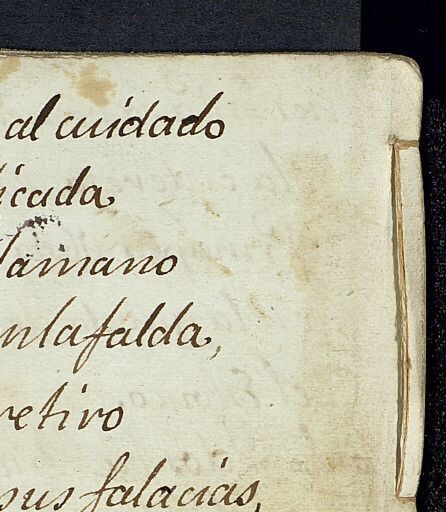 al cuidado
icada
lamano
nlafalda,
retiro
sus falacias,